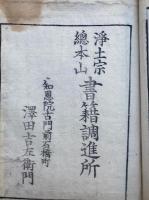 淨土宗
總本山
書籍調進所
知恩院古門前石橋町
澤田吉左衞門